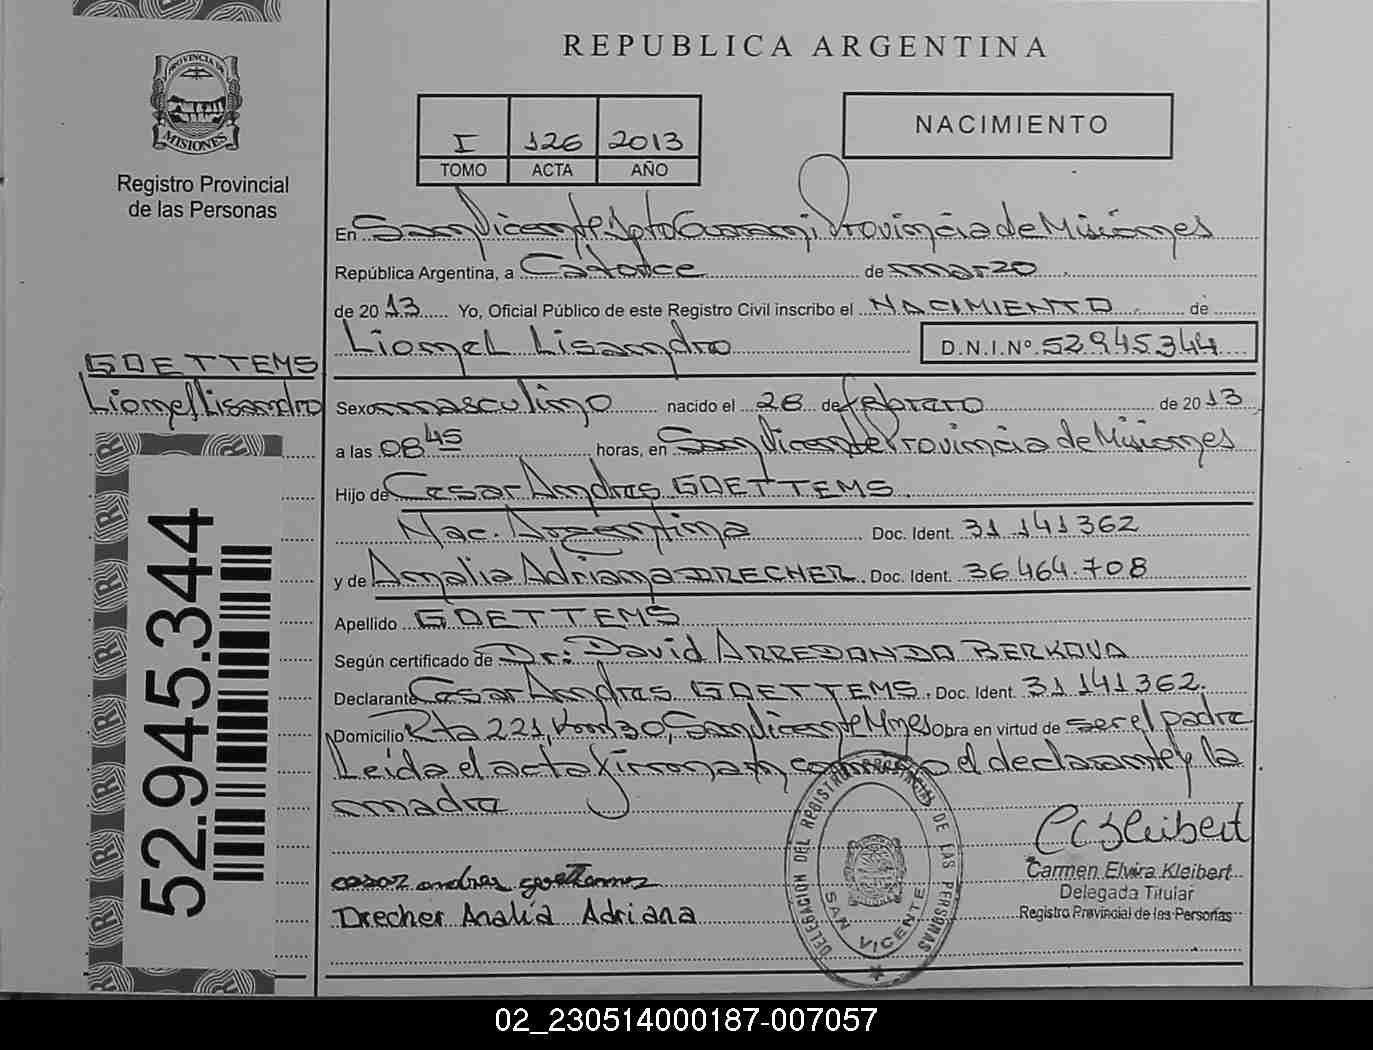 REPUBLICA ARGENTINA
PROVINCIA DE
MISIONES
Registro Provincial
de las Personas
I 126 2013
TOMO ACTA AÑO
NACIMIENTO
En San Vicente, Dpto Guarani, Provincia de Misiones
República Argentina, a Catorce de marzo
de 2013 Yo, Oficial Público de este Registro Civil inscribo el NACIMIENTO de
Lionel Lisandro D.N.I.Nº 52.945.344
GOETTEMS
Lionel Lisandro
Sexo masculino nacido el 28 de febrero de 2013
a las 08 45 horas, en San Vicente Provincia de Misiones
Hijo de Cesar Andres GOETTEMS
Nac. Argentina Doc. Ident. 31.141362
y de Analia Adriana DRECHER Doc. Ident. 36.464.708
Apellido GOETTEMS
Según certificado de Dr: David ARREDONDO BERKOVA
Declarante Cesar Andres GOETTEMS. Doc. Ident. 31 141362.
Domicilio Rta 221, Km 30, San Vicente Mnes Obra en virtud de ser el padre
Leida el acta firman conmigo el declarante y la
madre
52.945.344
CEKleibert
Carmen Elvira Kleibert
Delegada Titular
Registro Provincial de las Personas
cesar andres goettems
Drecher Analía Adriana
DELEGACION DEL REGISTRO PROVINCIAL DE LAS PERSONAS
SAN VICENTE
02_230514000187-007057